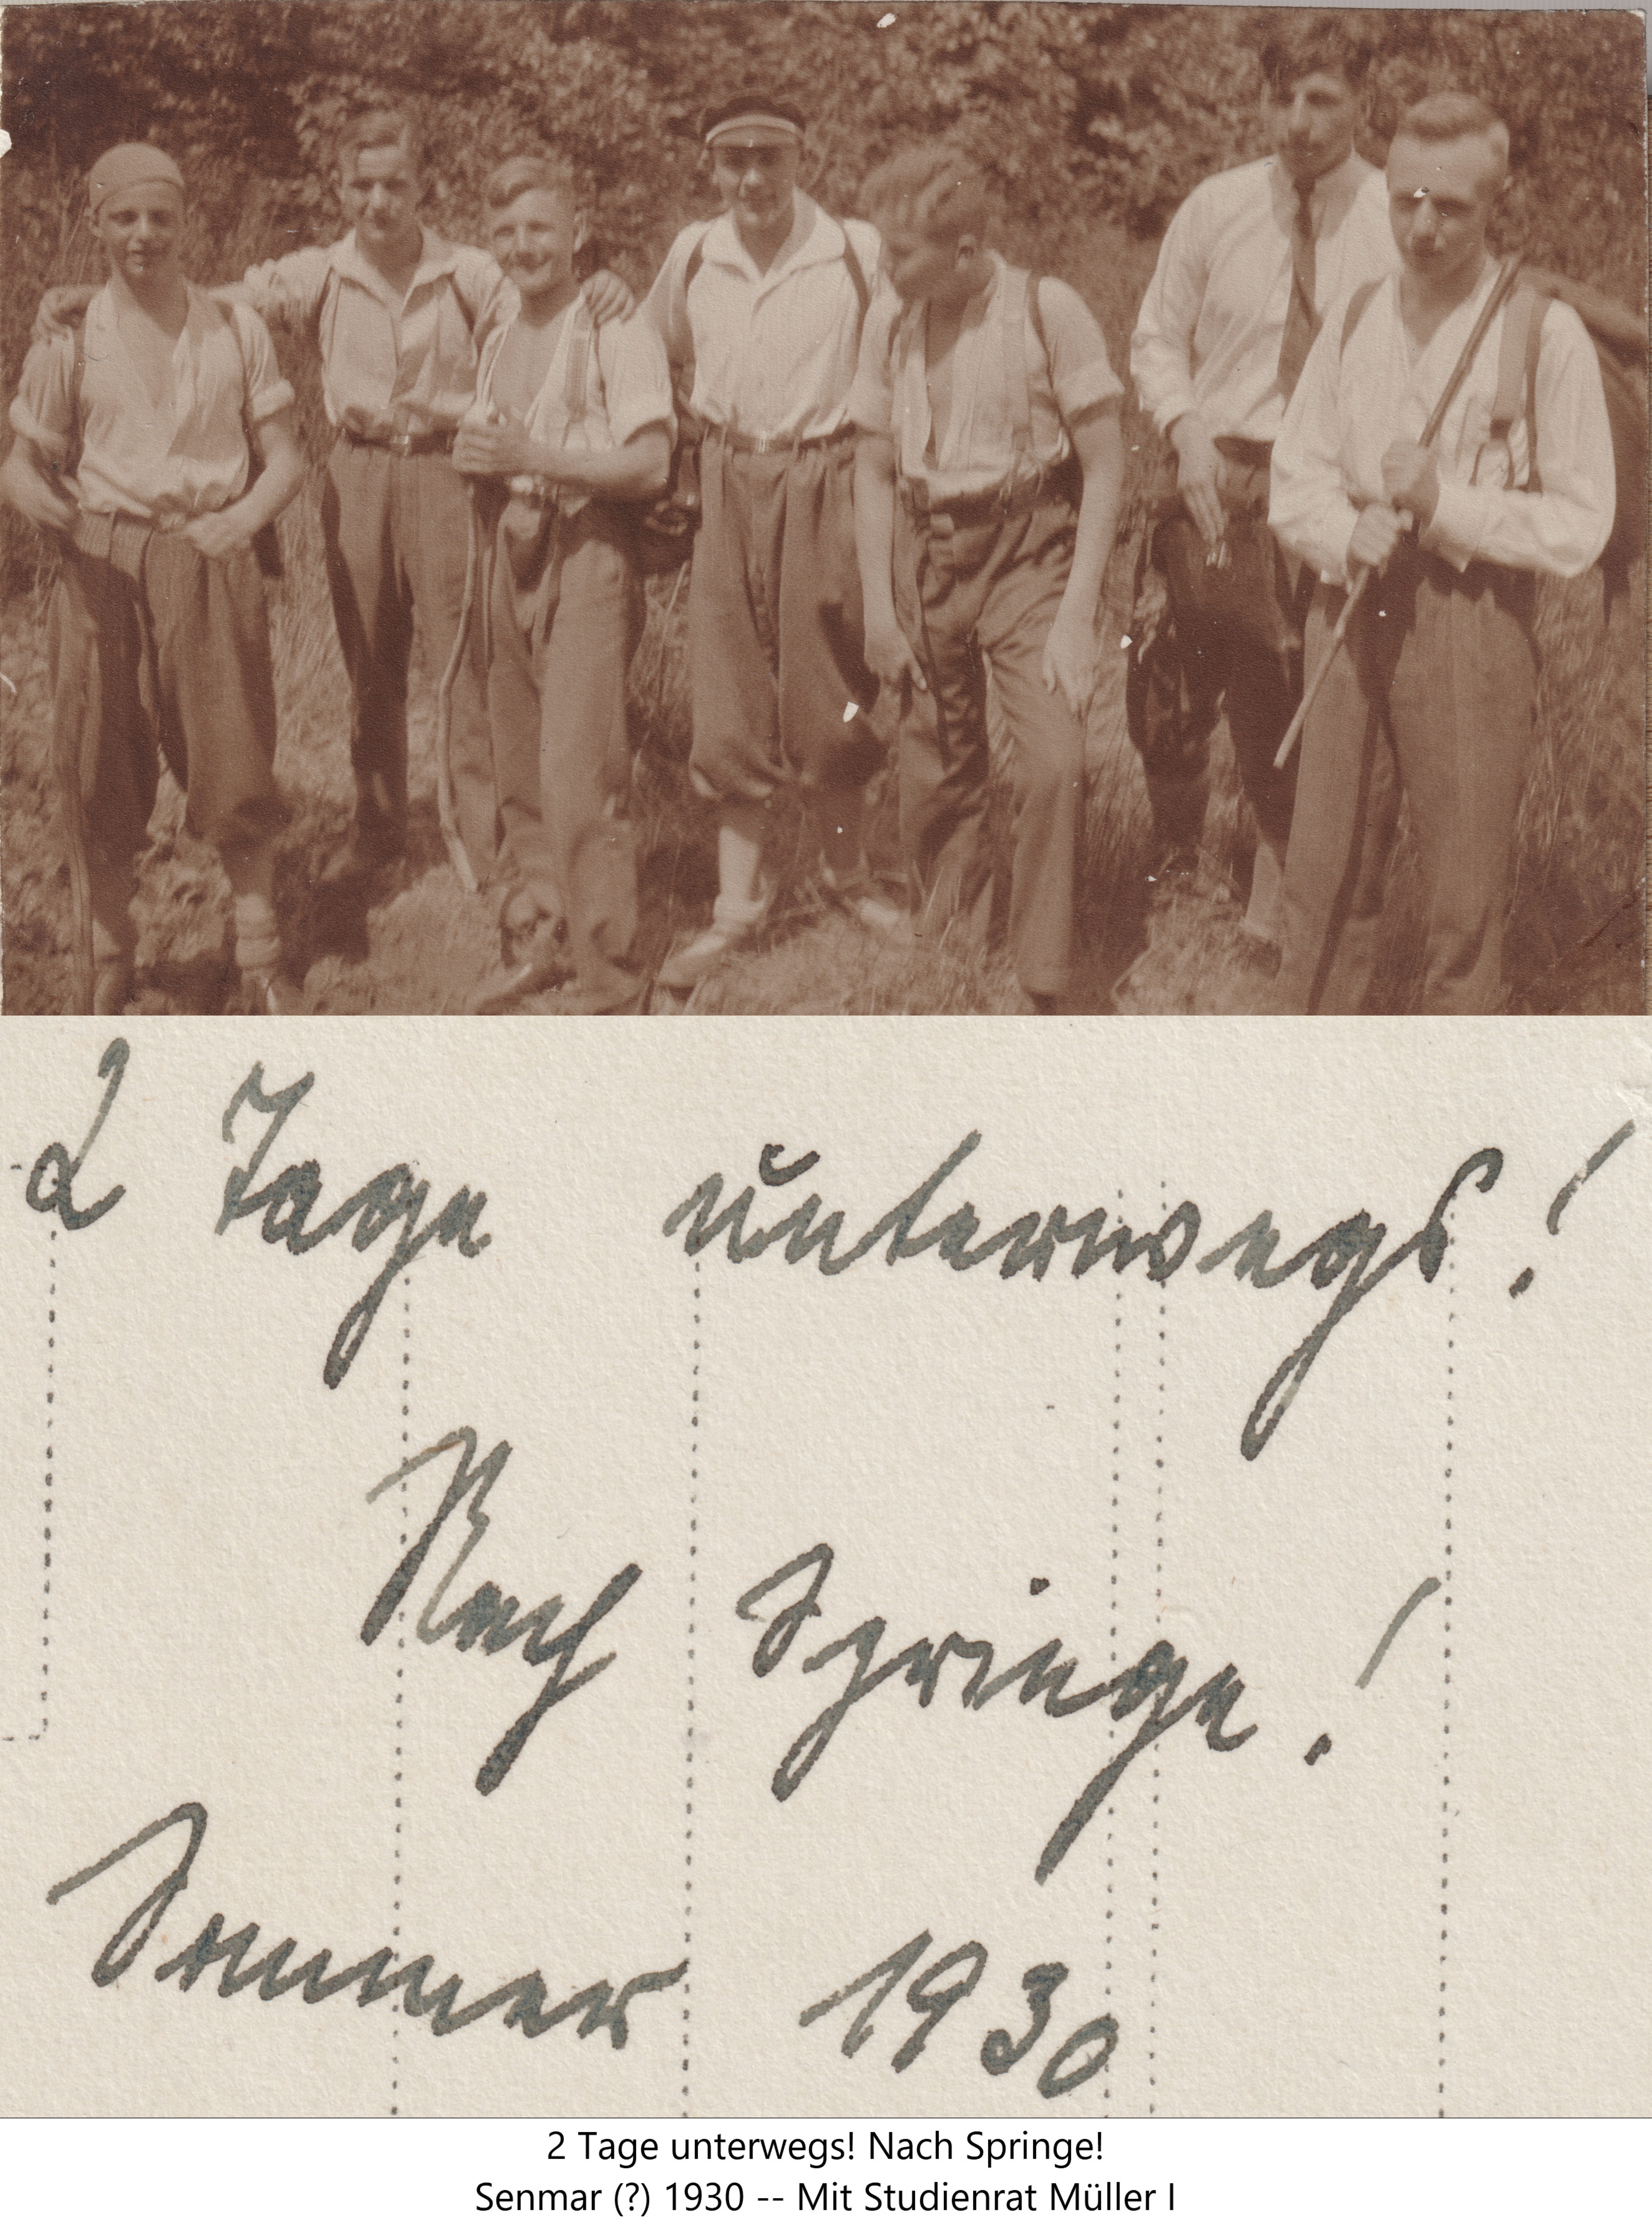 2 Tage unterwegs!
Nach Springe!
Sommer 1930
2 Tage unterwegs! Nach Springe!
Senmar (?) 1930 -- Mit Studienrat Müller I